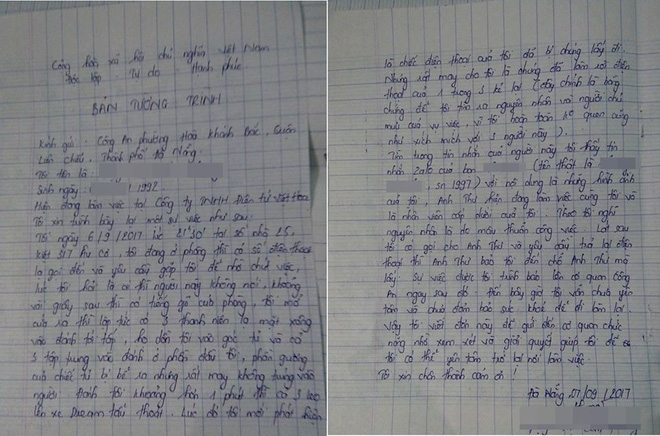 Cộng hòa xã hội chủ nghĩa Việt Nam
Độc lập - Tự do - Hạnh phúc
BẢN TƯỜNG TRÌNH
Kính gửi : Công An phường Hoà Khánh Bắc, Quận
Liên Chiểu, Thành phố Đà Nẵng.
Tôi tên là :
Sinh ngày : 1992
Hiện đang làm việc tại Công ty TNHH Điện tử Việt Hoa
Tôi xin trình bày lại một sự việc như sau.
Tối ngày 6/9/2017 lúc 21h30' tại số nhà 25,
Kiệt 517 Âu Cơ, tôi đang ở phòng thì có số điện thoại
lạ gọi đến và yêu cầu gặp tôi để nhờ chút việc,
lúc tôi hỏi là ai thì người này không nói, khoảng
vài giây sau thì có tiếng gõ cửa phòng, tôi mở
cửa ra thì lập tức có 3 thanh niên lạ mặt xông
vào đánh tới tấp, họ dồn tôi vào góc tủ và cả
3 tập trung vào đánh ở phần đầu tôi, phần gương
của chiếc tủ bị bể ra nhưng rất may không trúng vào
người. Đánh tôi khoảng hơn 1 phút thì cả 3 leo
lên xe Dream tẩu thoát. Lúc đó tôi mới phát hiện
là chiếc điện thoại của tôi đã bị chúng lấy đi.
Nhưng rất may cho tôi là chúng đã làm rơi điện
thoại của 1 trong 3 kẻ lại (đây chính là bằng
chứng để tôi tìm ra nguyên nhân và người chủ
mưu của vụ việc, vì tôi hoàn toàn không quen cũng
như xích mích với 3 người này).
Tên tin nhắn của người này tôi thấy tin
nhắn Zalo của bạn (tên thật là
, sn 1997) với nội dung là những hình ảnh
của tôi, Anh Thư hiện đang làm việc cùng tôi và
là nhân viên cấp dưới của tôi. Theo tôi nghĩ
nguyên nhân là do mâu thuẫn công việc. Lát sau
tôi có gọi cho Anh Thư và yêu cầu trả lại điện
thoại thì Anh Thư bảo tôi đến chỗ Anh Thư mà
lấy. Sự việc được tôi trình báo lên cơ quan Công
An ngay sau đó. Đến bây giờ tôi vẫn chưa yên
tâm và chưa đảm bảo sức khoẻ để đi làm lại.
Vậy tôi viết đơn này để gửi đến cơ quan chức
năng nhờ xem xét và giải quyết giúp tôi để
tôi có thể yên tâm trở lại nơi làm việc.
Tôi xin chân thành cảm ơn !
Đà Nẵng, 07/09/2017